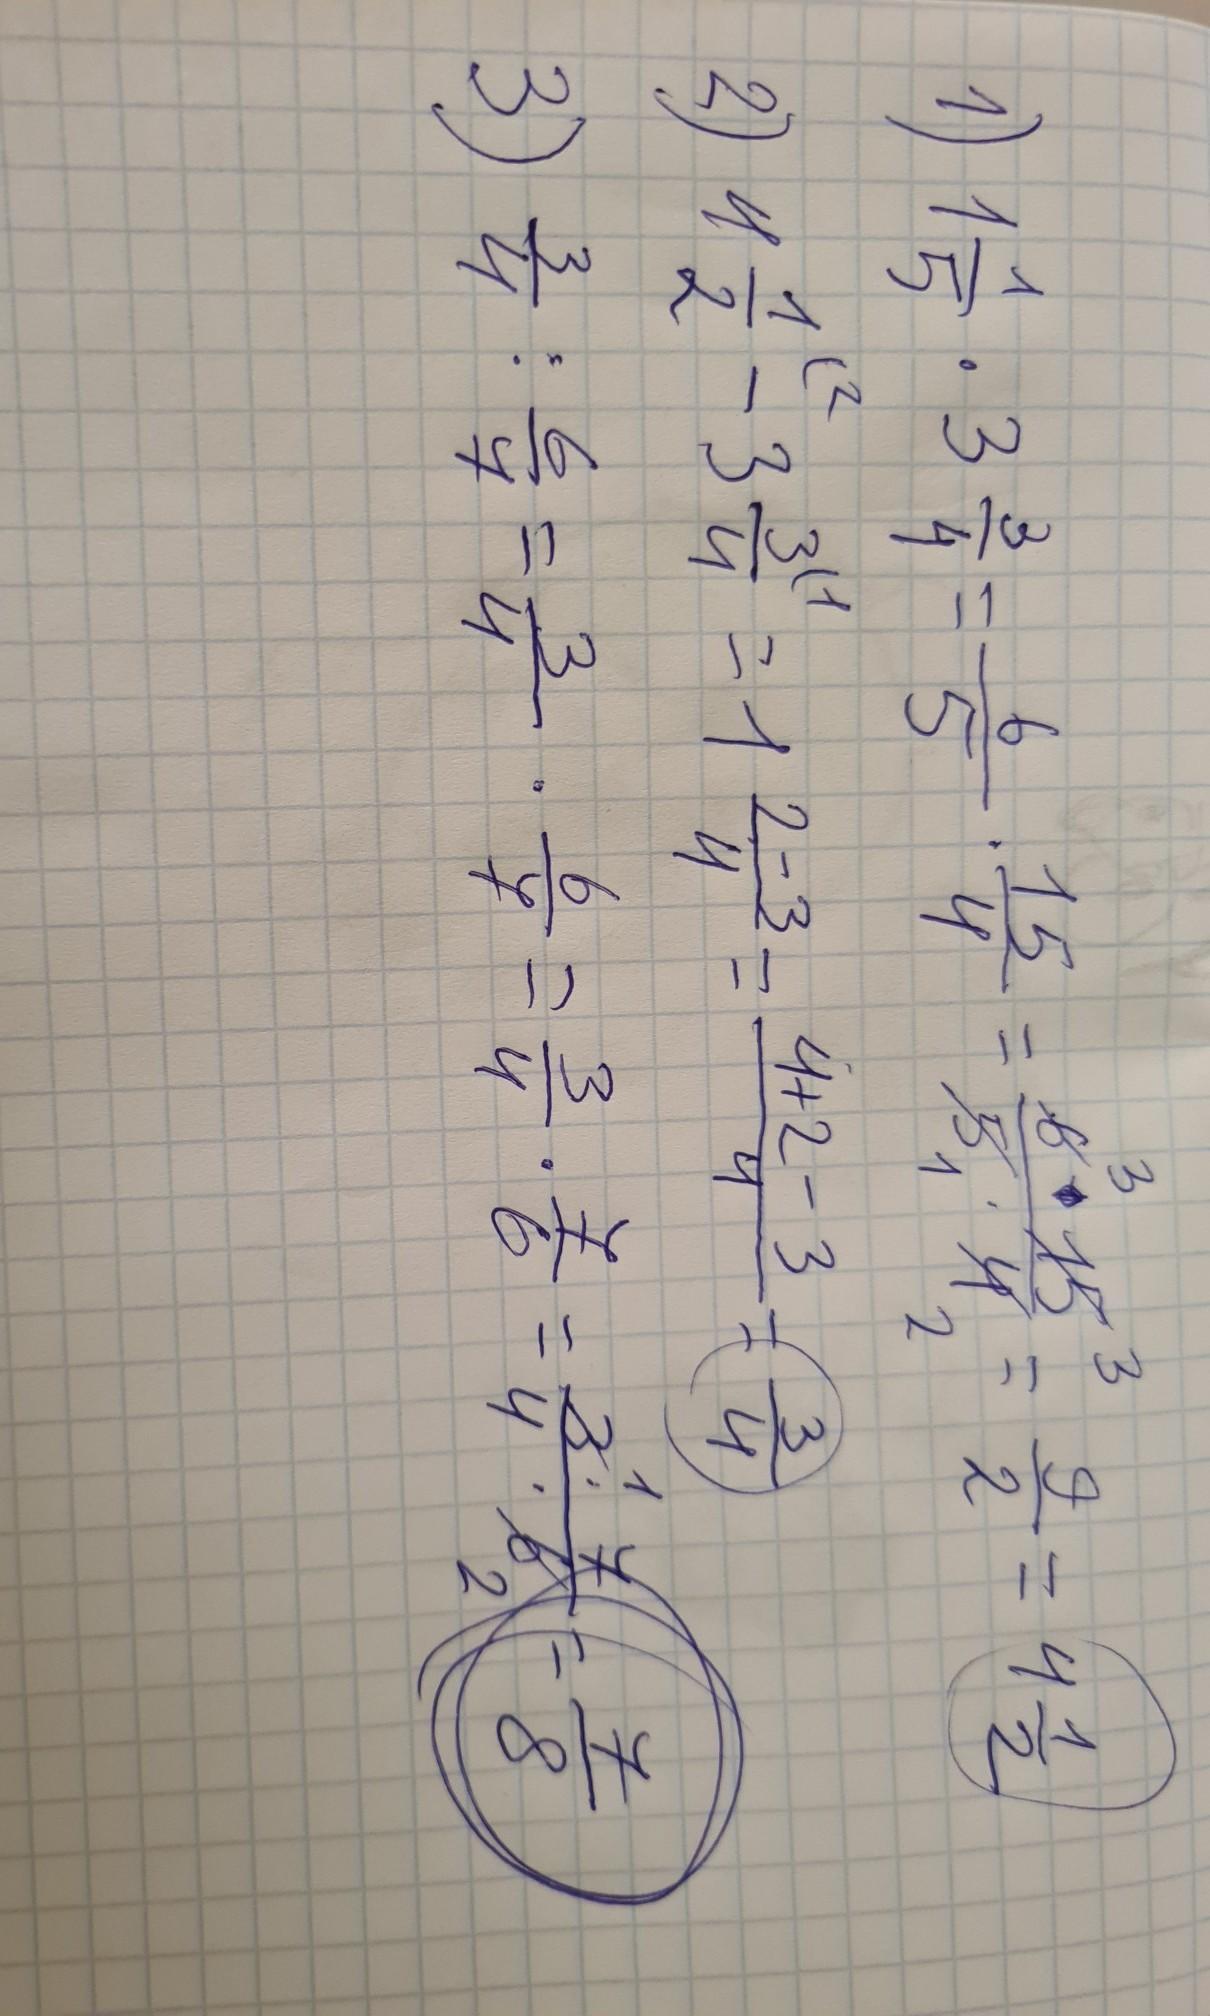 1) 1 1/5 · 3 3/4 = 6/5 · 15/4 = 6 · 15/5 · 4 3 3 1 2 = 9/2 = 4 1/2
2) 4 1/2 (2 - 3 3/4 (1 = 1 2-3/4 = 4+2-3/4 = 3/4
3) 3/4 : 6/7 = 3/4 · 6/7 = 3/4 · 7/6 = 3 · 7/4 · 6 1 2 = 7/8